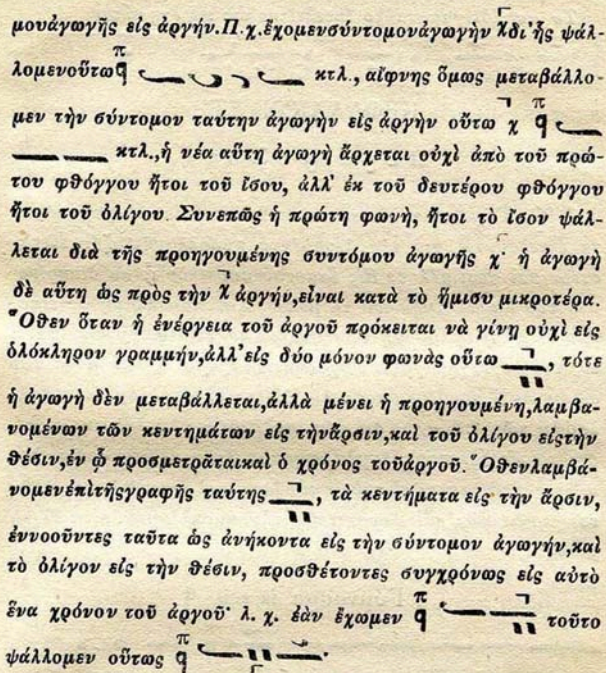 μουἀγωγῆς εἰς ἀργήν. Π. χ. ἔχομενσύντομονἀγωγὴν χ δι' ἧς ψάλ-
λομενοὕτω π q κτλ., αἴφνης ὅμως μεταβάλλο-
μεν τὴν σύντομον ταύτην ἀγωγὴν εἰς ἀργὴν οὕτω χ π q
κτλ., ἡ νέα αὕτη ἀγωγὴ ἄρχεται οὐχὶ ἀπὸ τοῦ πρώ-
του φθόγγου ἤτοι τοῦ ἴσου, ἀλλ' ἐκ τοῦ δευτέρου φθόγγου
ἤτοι τοῦ ὀλίγου. Συνεπῶς ἡ πρώτη φωνὴ, ἤτοι τὸ ἴσον ψάλ-
λεται διὰ τῆς προηγουμένης συντόμου ἀγωγῆς χ· ἡ ἀγωγὴ
δὲ αὕτη ὡς πρὸς τὴν χ ἀργήν, εἶναι κατὰ τὸ ἥμισυ μικροτέρα.
Ὅθεν ὅταν ἡ ἐνέργεια τοῦ ἀργοῦ πρόκειται νὰ γίνῃ οὐχὶ εἰς
ὁλόκληρον γραμμήν, ἀλλ' εἰς δύο μόνον φωνὰς οὕτω , τότε
ἡ ἀγωγὴ δὲν μεταβάλλεται, ἀλλὰ μένει ἡ προηγουμένη, λαμβα-
νομένων τῶν κεντημάτων εἰς τὴνἄρσιν, καὶ τοῦ ὀλίγου εἰςτὴν
θέσιν, ἐν ᾧ προσμετρᾶταικαὶ ὁ χρόνος τοῦἀργοῦ. Ὅθενλαμβά-
νομενἐπὶτῆςγραφῆς ταύτης , τὰ κεντήματα εἰς τὴν ἄρσιν,
ἐννοοῦντες ταῦτα ὡς ἀνήκοντα εἰς τὴν σύντομον ἀγωγήν, καὶ
τὸ ὀλίγον εἰς τὴν θέσιν, προσθέτοντες συγχρόνως εἰς αὐτὸ
ἕνα χρόνον τοῦ ἀργοῦ· λ. χ. ἐὰν ἔχωμεν π q τοῦτο
ψάλλομεν οὕτως π q .